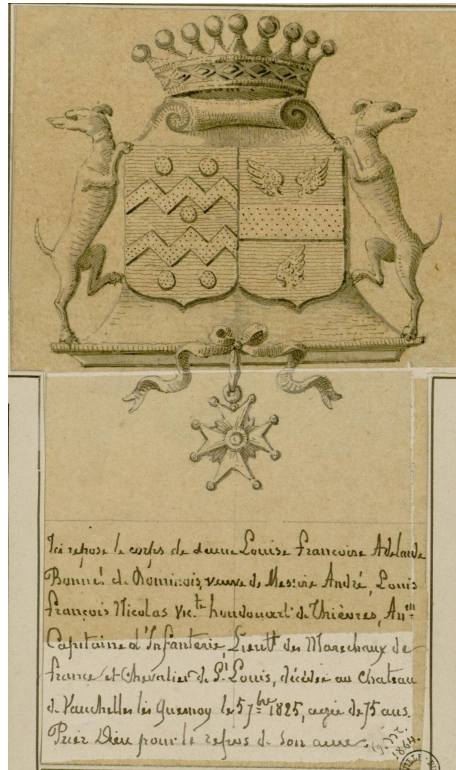 Ici repose le corps de dame Louise Francoise Adelaide
Bonnet de Rominois, veuve de Messire André, Louis
françois Nicolas Victe houdouart de Thièvres, Ancn
Capitaine d'Infanterie, Lieutt des Marechaux de
france et Chevalier de St Louis, décédée au Chateau
de Vauchelles les Quesnoy le 5 7bre 1825, agée de 75 ans.
Priez Dieu pour le repos de son ame.
1864.